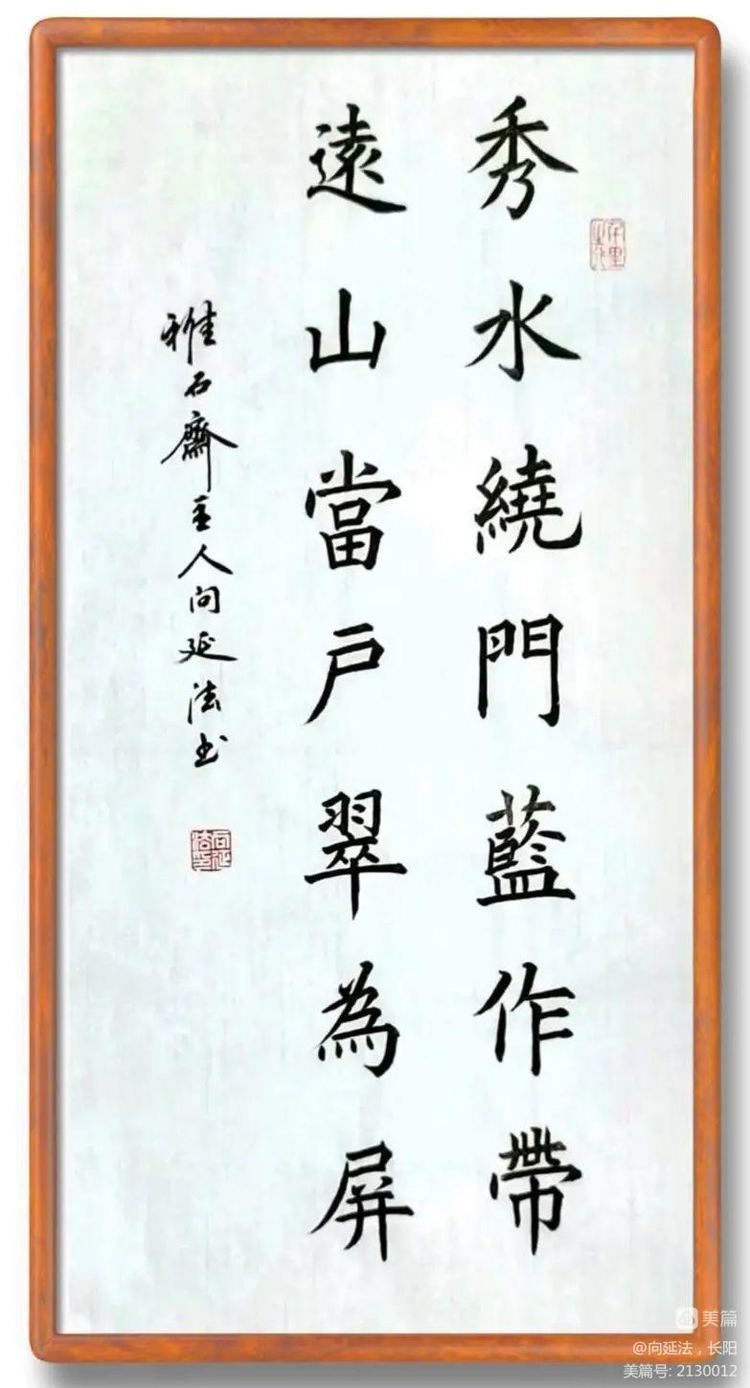 秀水繞門藍作帶
遠山當戶翠為屏
雅石齋主人向延法书
美篇
@向延法，长阳
美篇号: 2130012